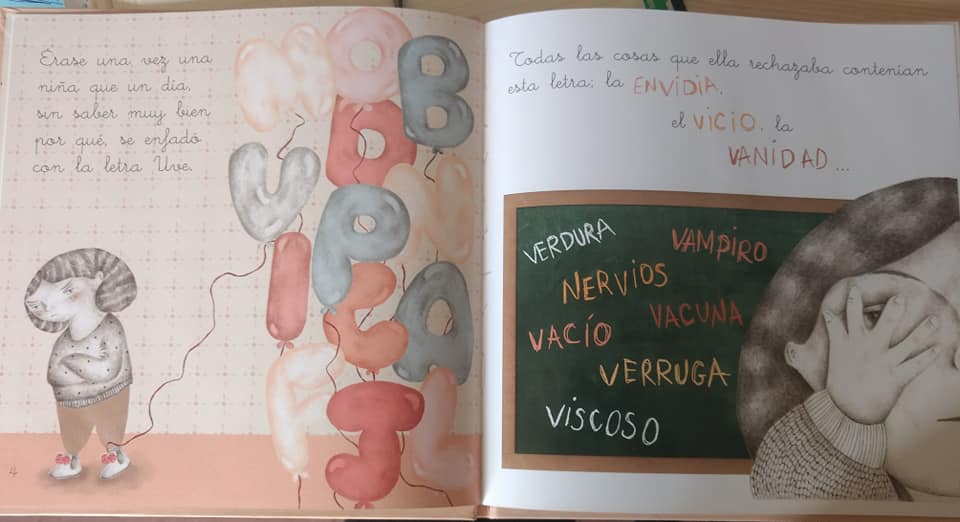 Érase una vez una
niña que un día,
sin saber muy bien
por qué, se enfadó
con la letra Uve.
M O B
D
V N
P
I E A
F J L
4
Todas las cosas que ella rechazaba contenían
esta letra: la ENVIDIA,
el VICIO, la
VANIDAD...
VERDURA VAMPIRO
NERVIOS
VACUNA
VACÍO
VERRUGA
VISCOSO